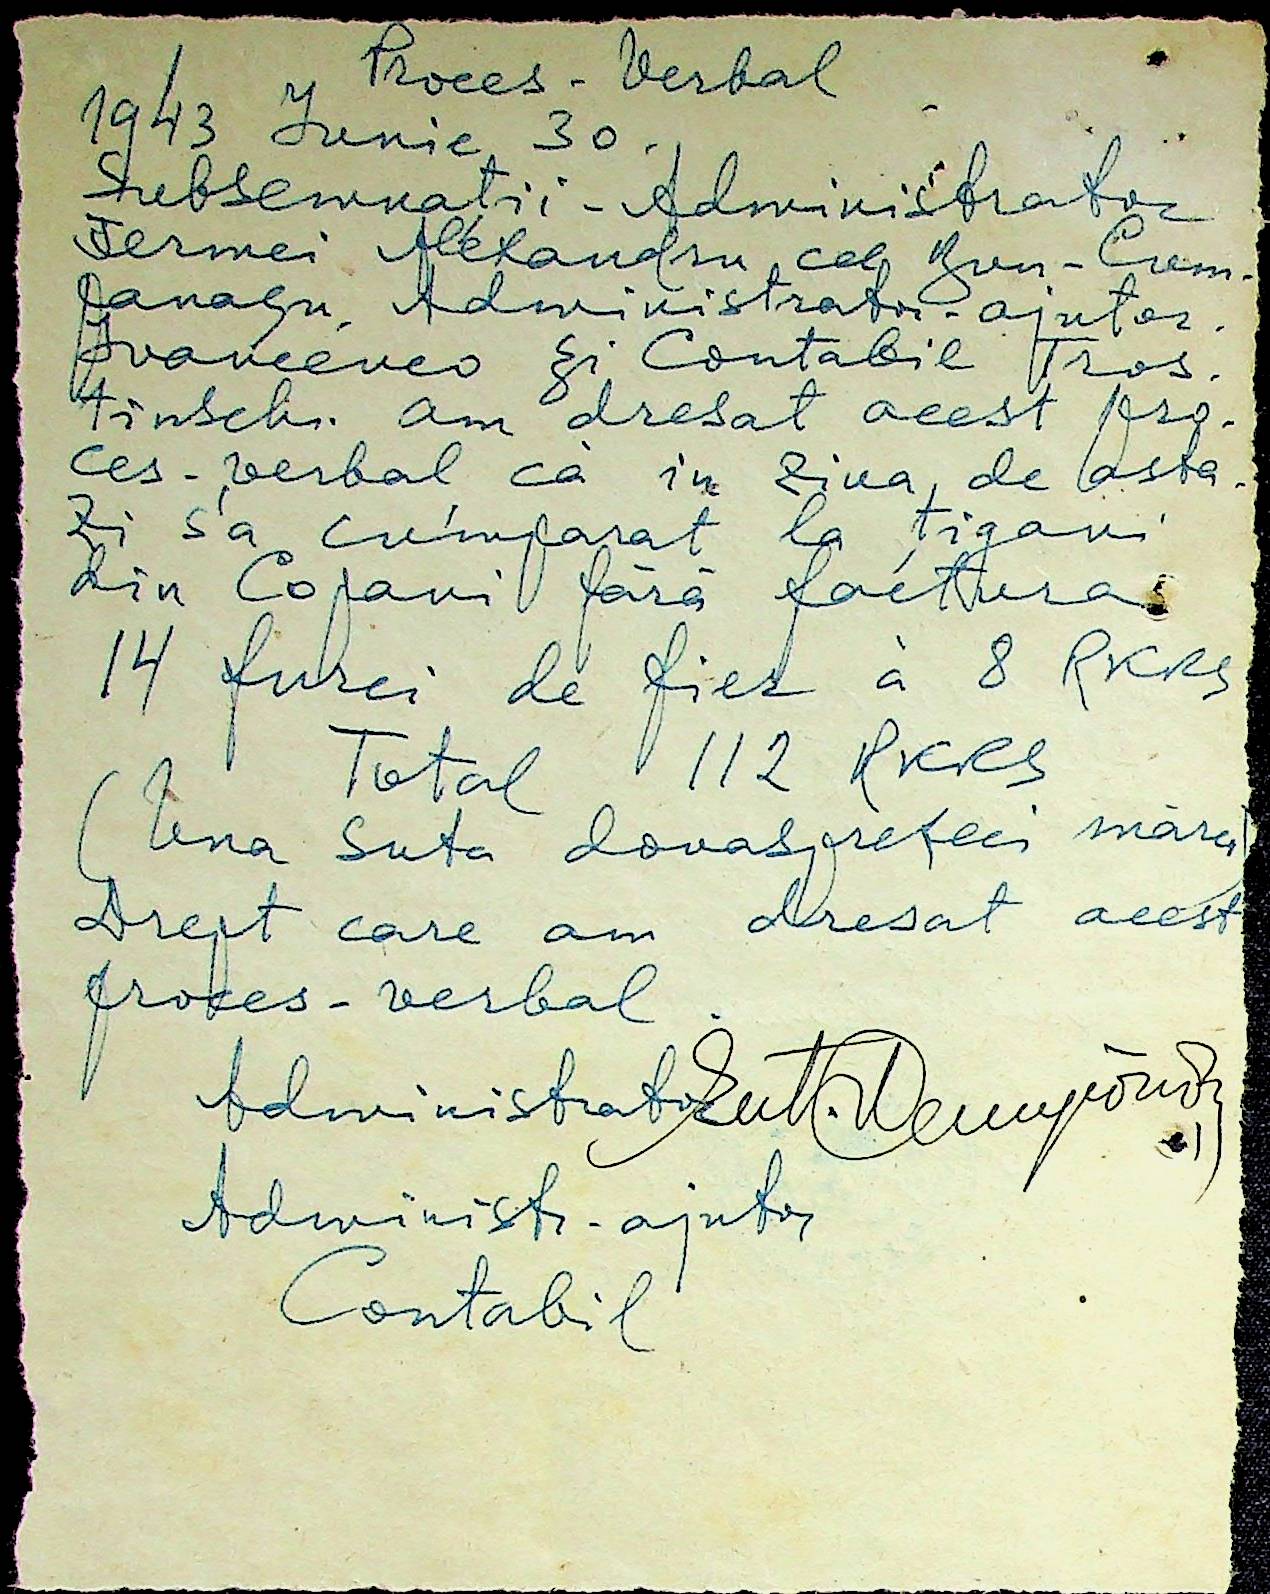 Proces-Verbal
1943 Iunie 30.
Subsemnații - Administrator
Fermei Alexandru cel Bun - Cum-
panagu, Administrator-ajutor.
Ivanceneo și Contabil Tros.
tinschi. am dresat acest pro-
ces-verbal că in ziua, de astă-
zi s'a cumparat la țigani
din Copani fără factura
14 furci de fier à 8 RKKS
Total 112 RKKS
(Una suta douasprezeci mărci)
Drept care am dresat acest
proces-verbal.
Administrator
Administr-ajutor
Contabil